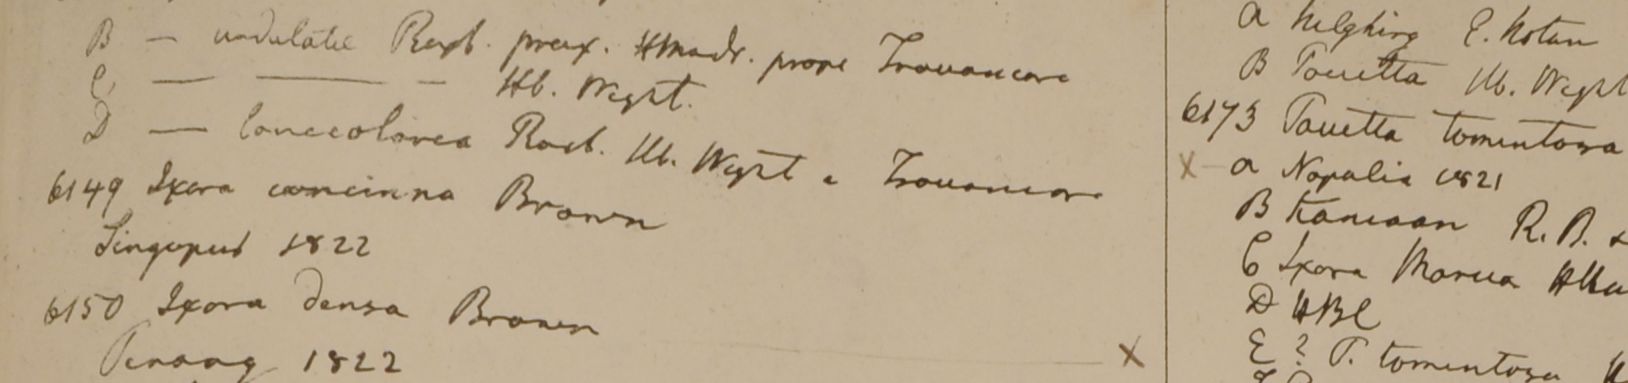 B — undulata Roxb. prope. HMadr. prope Travancore
C, — — — Hb. Wight.
D — lanceolaria Roxb. Hb. Wight e Travancor
6149 Ixora concinna Brown
Singapur 1822
6150 Ixora densa Brown
Penang 1822
X
a E. Kotan
B Pavetta Hb. Wight
6173 Pavetta tomentosa
X a Napalia 1821
B Kamaon R.B. &
C Ixora
D HBC
E ? P. tomentosa H